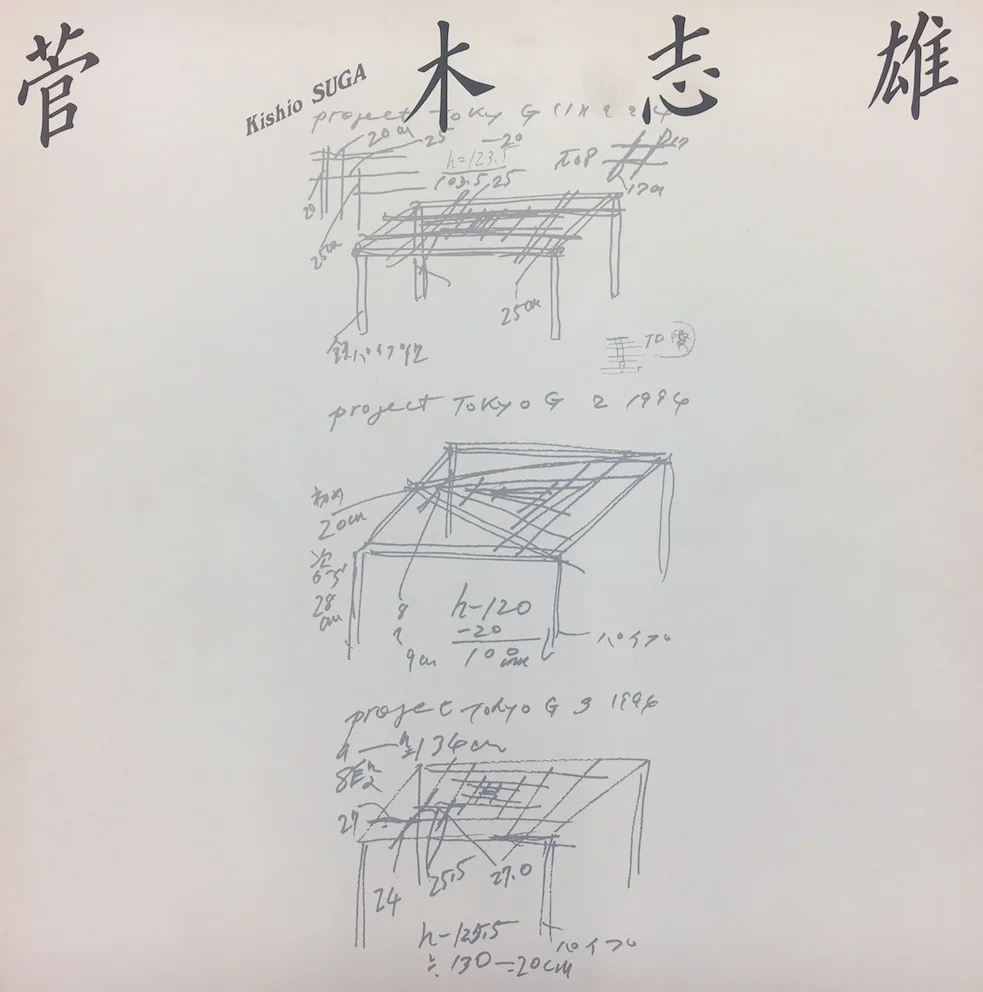 菅木志雄
Kishio SUGA
project Tokyo G
20cm
25
-20
h=123.5
103.5.25
TOP
17cm
20
25cm
25cm
TO
project TOKYO G 2 1994
初め
20cm
次
28
cm
8
9cm
h-120
-20
100cm
パイプ
project Tokyo G 3 1994
134cm
8段
27
24
25.5
27.0
h-125.5
パイプ
≒130-20cm